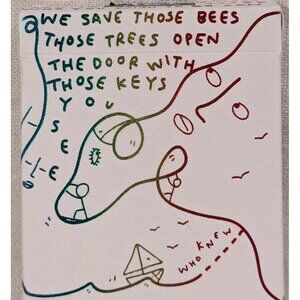 WE SAVE THOSE BEES
THOSE TREES OPEN
THE DOOR WITH
THOSE KEYS
YOU
S
E
E
WHO KNEW